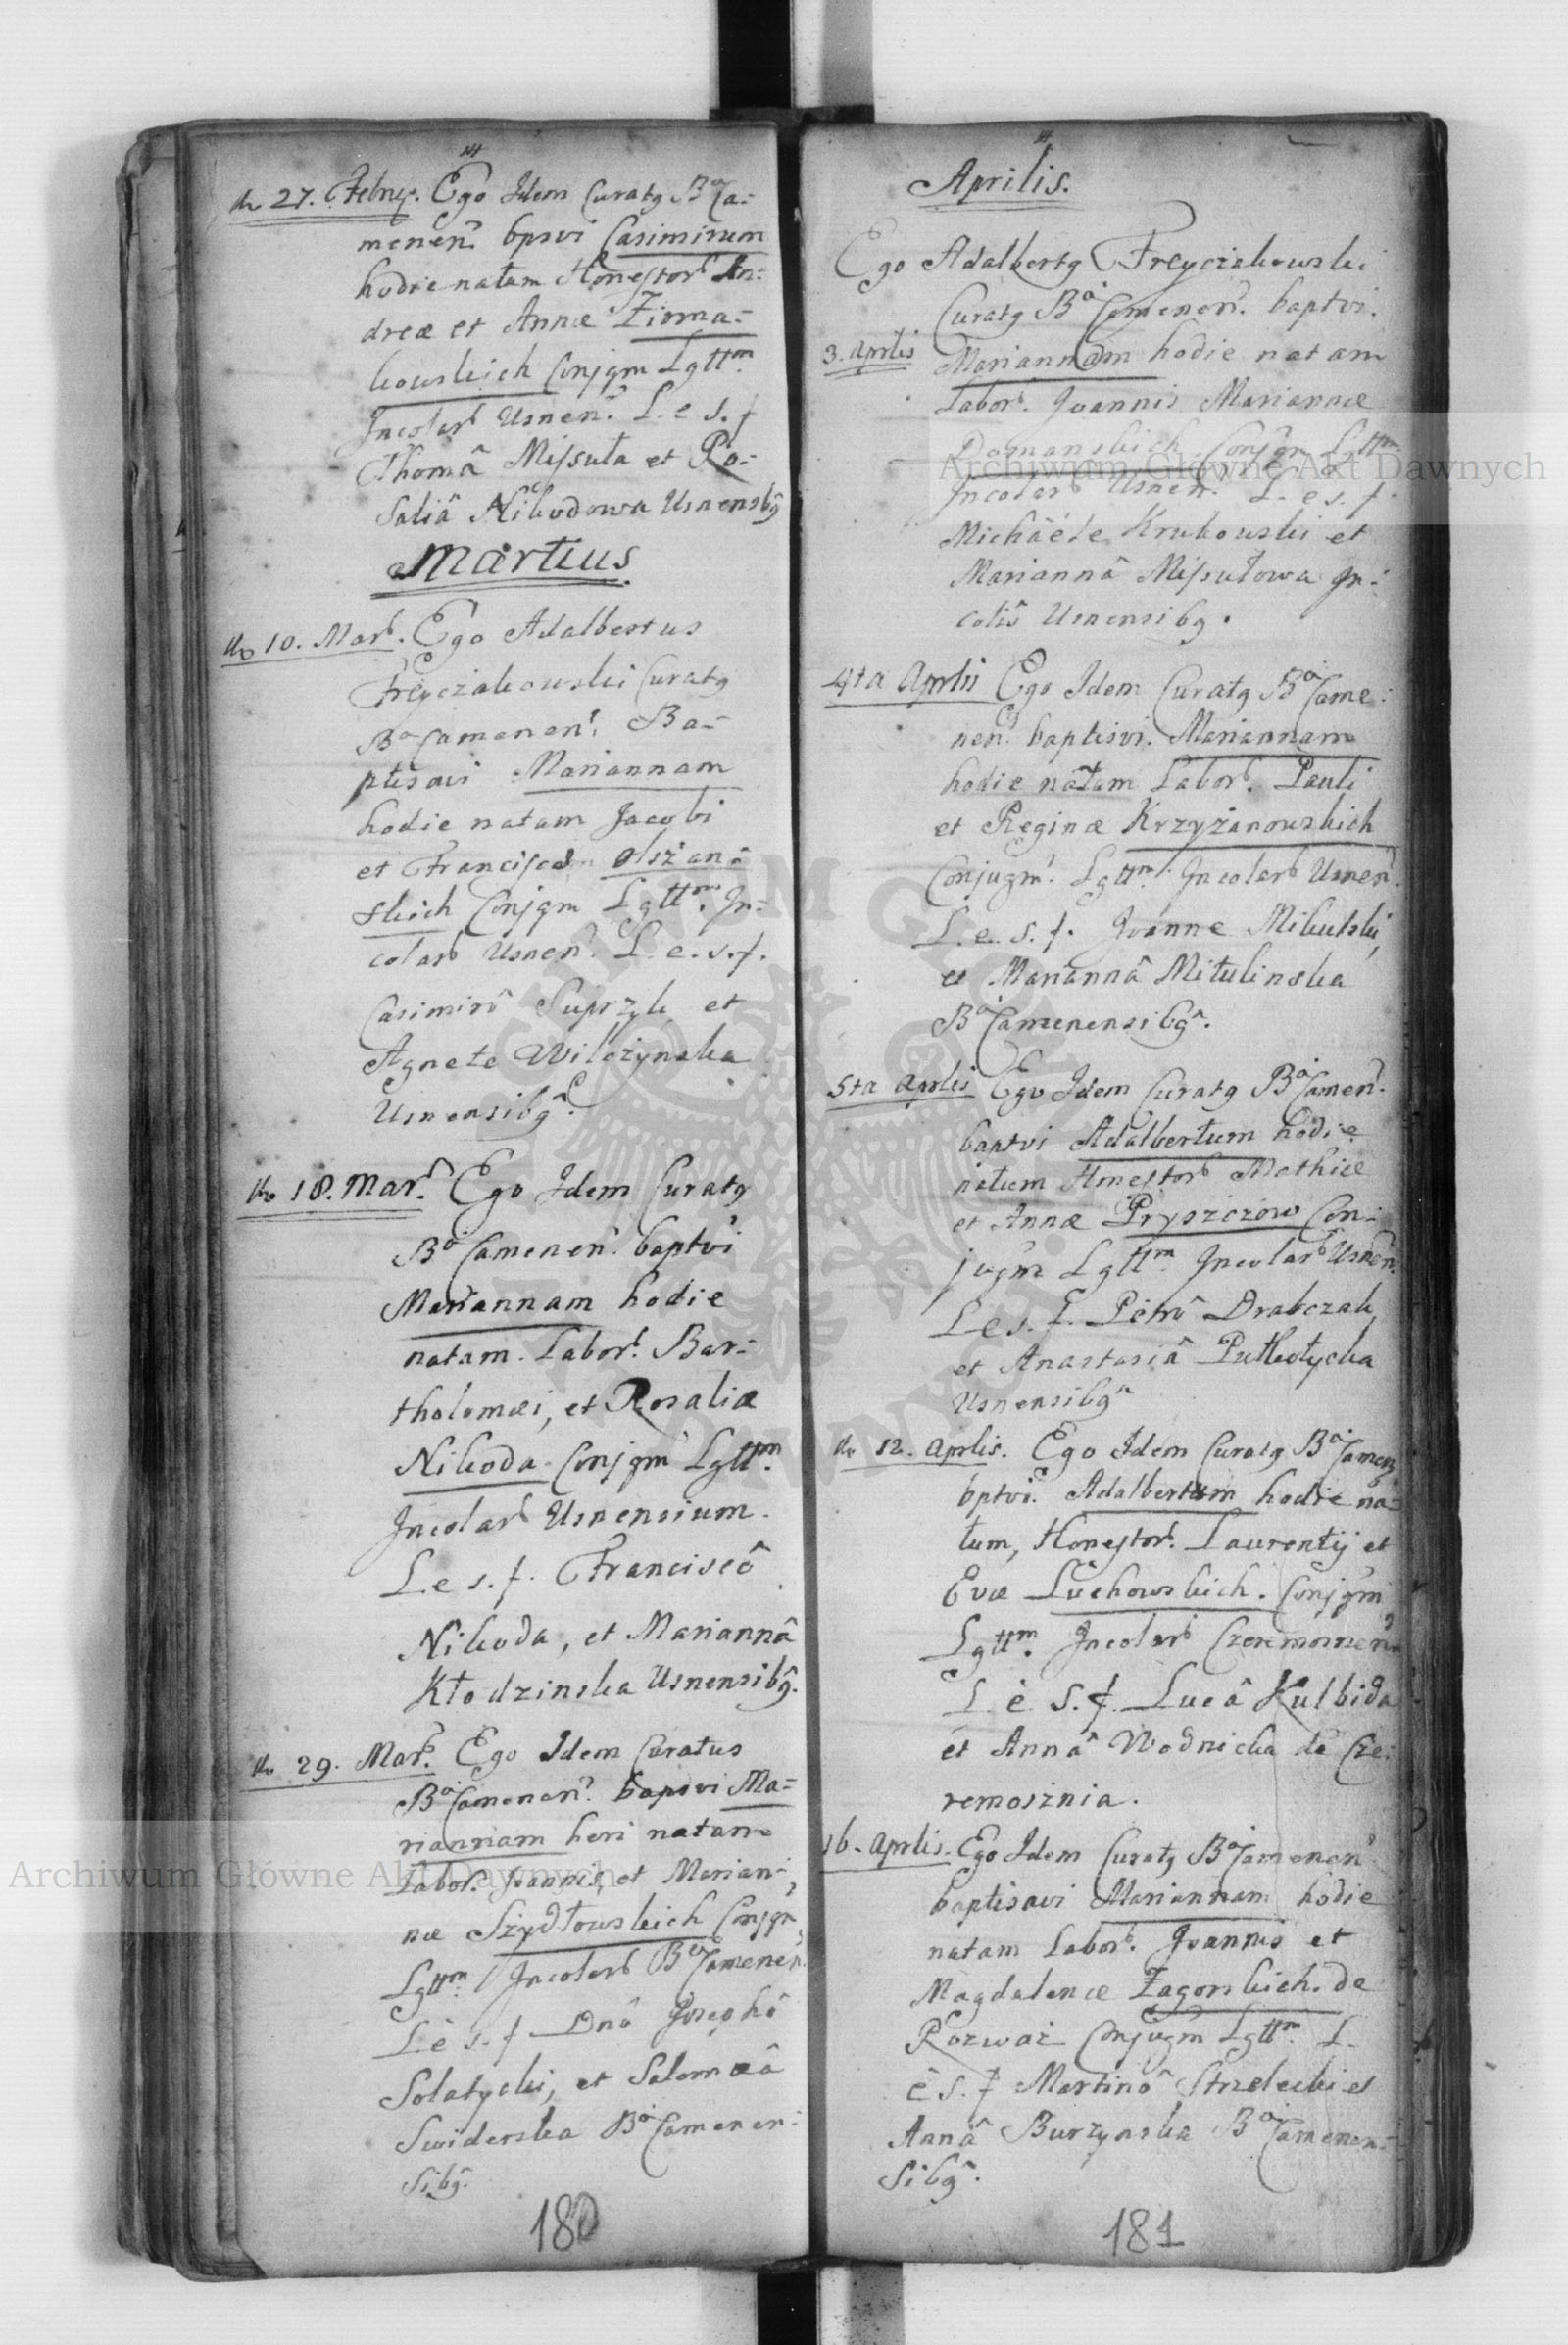 de 27. Febru. Ego Idem Curatg Bo Ca=
menen. bpsvi Casimirum
hodie natum Honestorb An=
dreæ et Annæ Zioma=
kowskich Conjgm Lgttm
Incolarb Usnen. L. e s. f
Thomâ Missuta et Ro=
saliâ Nikodowa Usnensibg
Martius
de 10. Marb. Ego Adalbertus
Freyczakowski Curatg
Bo Camenen. Ba=
ptisavi Mariannam
hodie natam Jacobi
et Francisca Olszan=
skich Conjgm Lgttm. In=
colarb Usnen. L. e. s. f.
Casimirô Suprzyk et
Agnete Wilczynska
Usnensibg.
de 18. Mar. Ego Idem Curatg
Bo Camenen. baptvi
Mariannam hodie
natam. Labor. Bar=
tholomæi, et Rosaliæ
Nikoda Conjgm Lgttm.
Incolarb Usnensium.
L. e s. f. Franciscô
Nikoda, et Mariannâ
Kłodzinska Usnensibg.
de 29. Mar. Ego Idem Curatus
Bo Camenen. bapsvi Ma=
riannam heri natam
Labor. Joannis, et Marian=
næ Szydłowskich Conjgm
Lgttm. Incolarb Bo Camenen.
L. e s. f Dnô Josephô
Solatycki, et Salomæâ
Swiderska Bo Camenen=
sibg.
180
Aprilis.
Ego Adalbertg Freyczakowski
Curatg Bo Camenen. baptvi.
3. Aprlis Mariannam hodie natam
Labor. Joannis Mariannæ
Domanskich Conjgm Lgttm
Incolarb Usnen. L. e s. f.
Michaéle Krukowski et
Mariannâ Missutowa In=
colis Usnensibg.
4ta Aprlis Ego Idem Curatg Bo Came=
nen. baptisvi. Mariannam
hodie natam Labor. Pauli
et Reginæ Krzyżanowskich
Conjugm. Lgttm. Incolarb Usnen.
L. e. s. f. Joanne Mikutski,
et Mariannâ Mitulinska
Bo Camenensibg.
5ta Aprlis Ego Idem Curatg Bo Camen.
baptvi Adalbertum hodie
natum Honestorb Mathiæ
et Annæ Pryszczow Con=
jugm Lgttm. Incolarb Usnen.
L e s. f. Petrô Drabczak,
et Anastasiâ Putkotycka
Usnensibg
de 12. Aprlis. Ego Idem Curatg Bo Camen
bptvi. Adalbertum hodie na=
tum, Honestor. Laurentij et
Evæ Luchowskich. Conjgm
Lgttm. Incolarb Czeremosznen
L. è S. f. Lucâ Kulbida
et Annâ Wodnicka de Cze=
remosznia.
16. Aprlis. Ego Idem Curatg Bo Camenen
baptisavi Mariannam hodie
natam Labor. Joannis et
Magdalenæ Zagorskich. de
Rozwaz Conjugm Lgttm. L.
è S. f Martinô Strzelecki et
Annâ Burzynska Bo Camenen=
sibg.
181
Archiwum Główne Akt Dawnych
Archiwum Główne Akt Dawnych